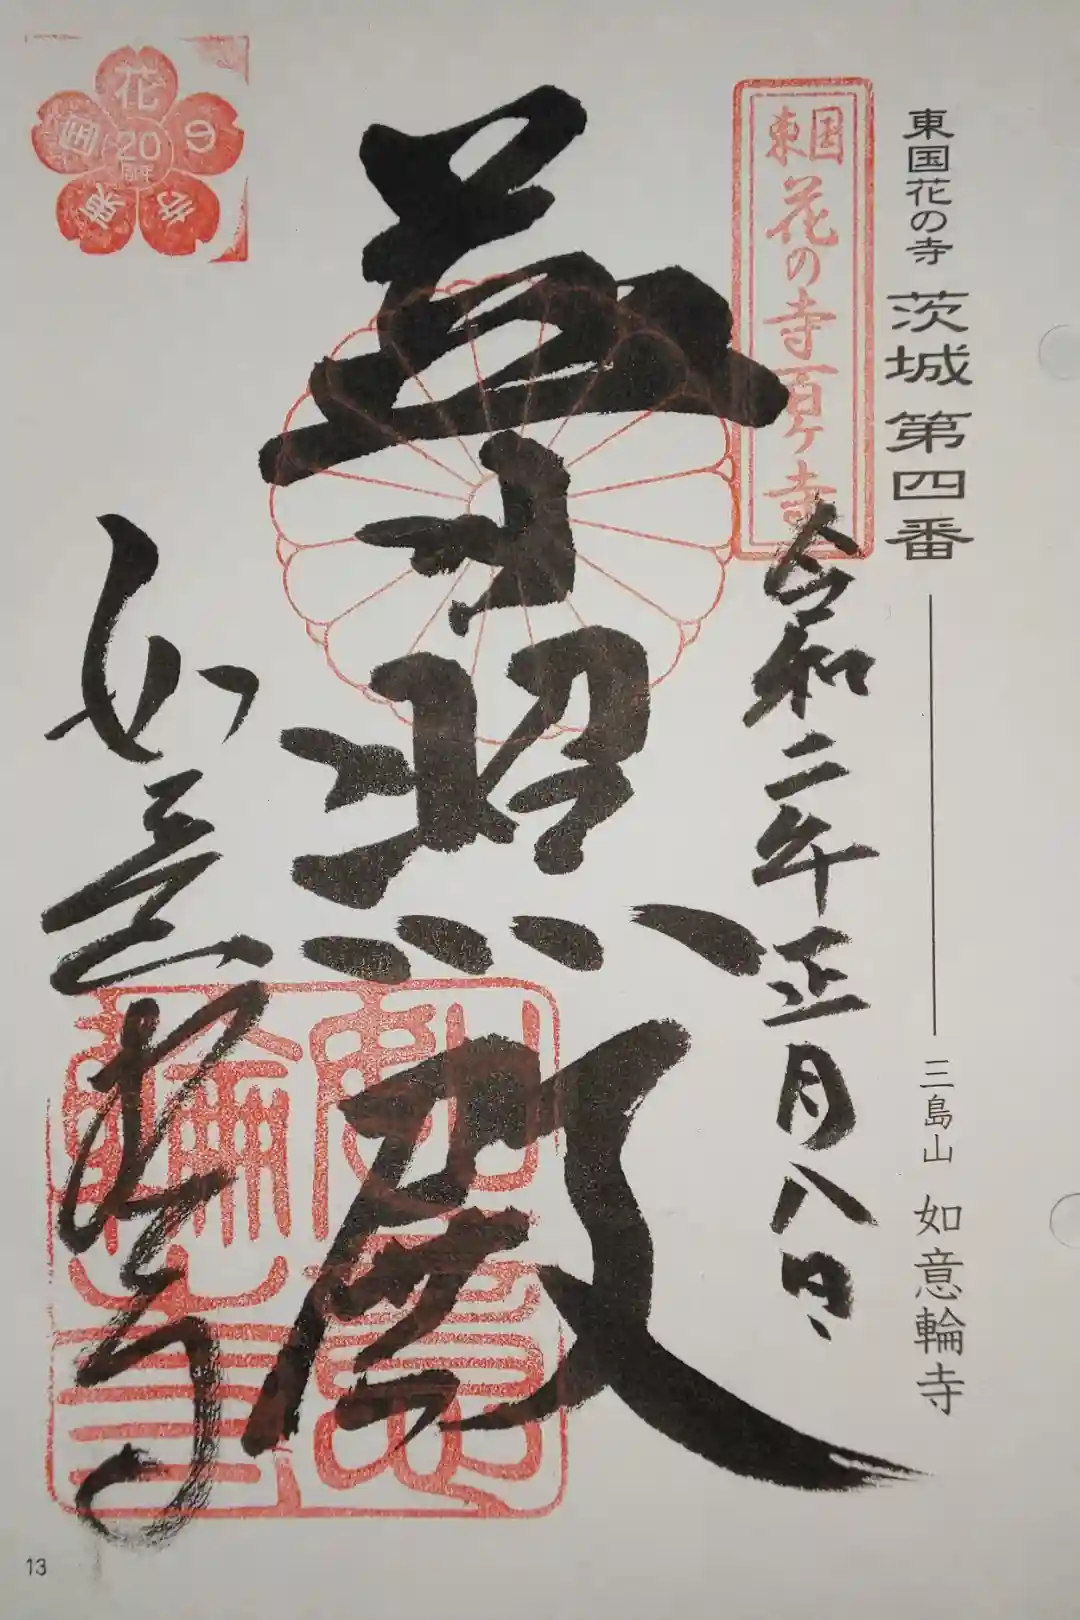 東国花の寺 茨城第四番 三島山 如意輪寺
東国花の寺百ヶ寺
令和二年正月八日
普照殿
如意輪寺
東国花の寺
20
周年
13